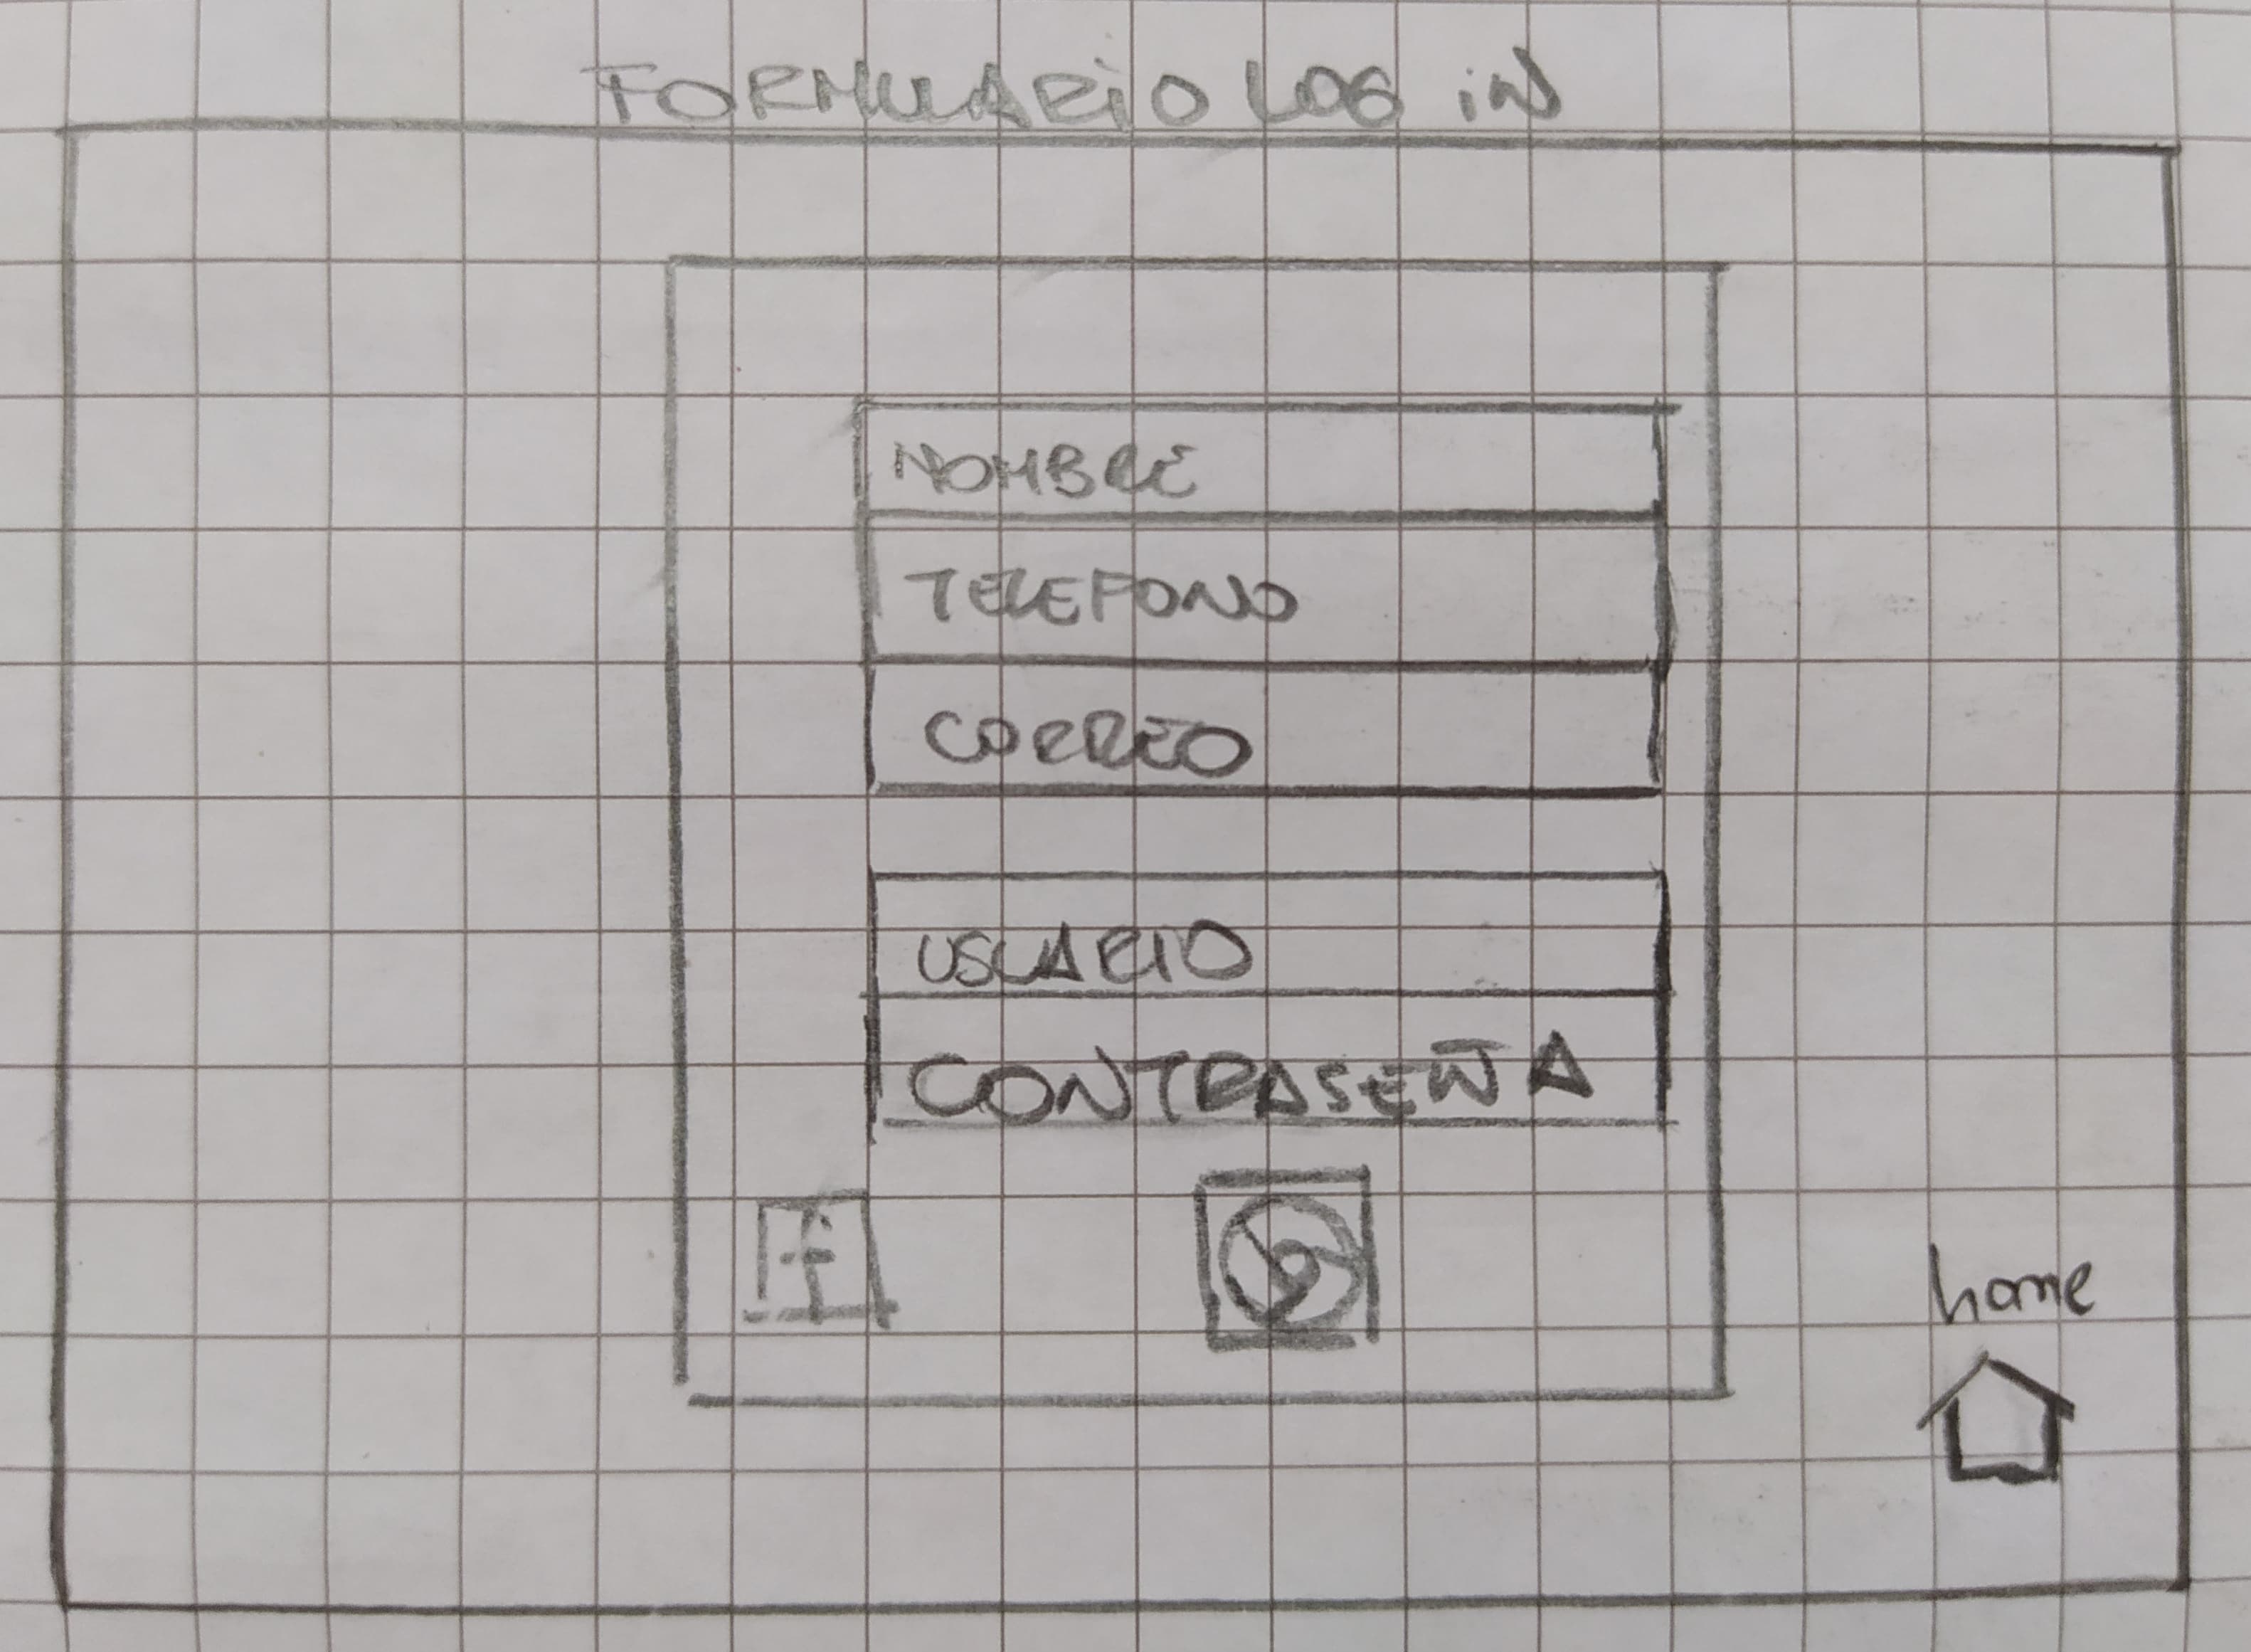 FORMULARIO LOG iN
NOMBRE
TELEFONO
CORREO
USUARIO
CONTRASEÑA
f
home